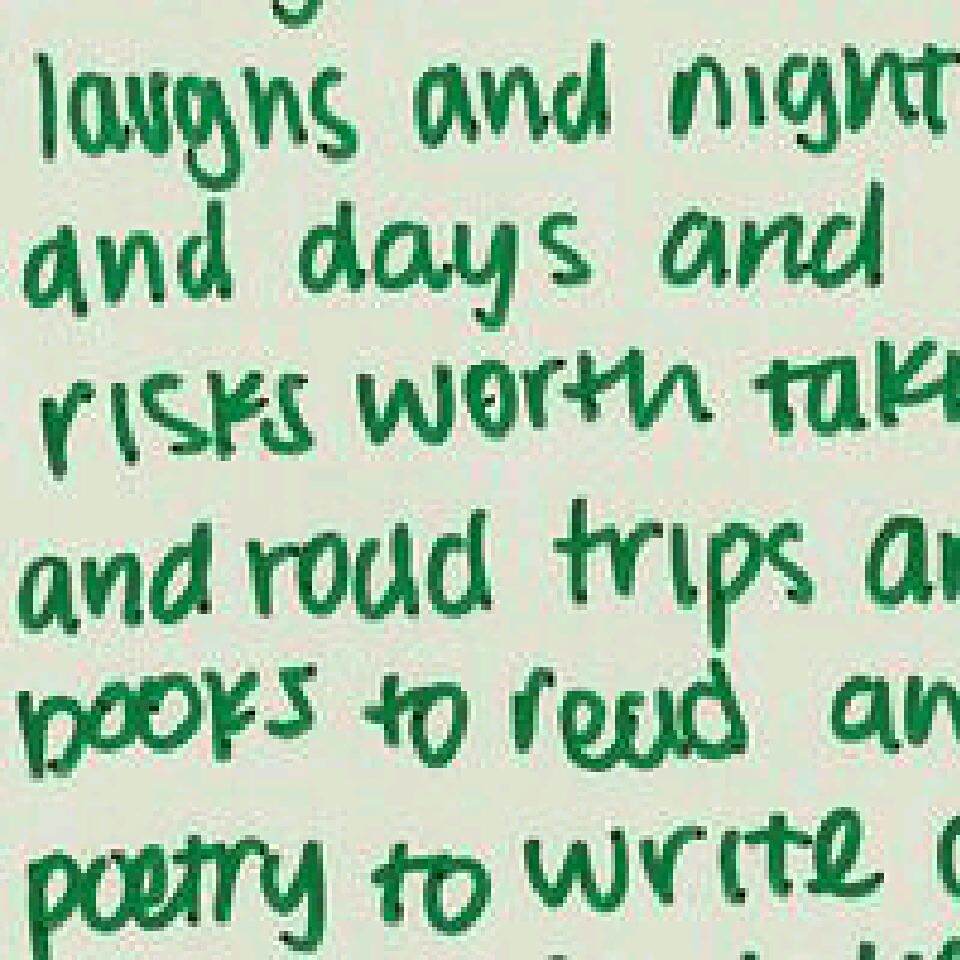 laughs and night
and days and
risks worth take
and road trips an
books to read an
poetry to write